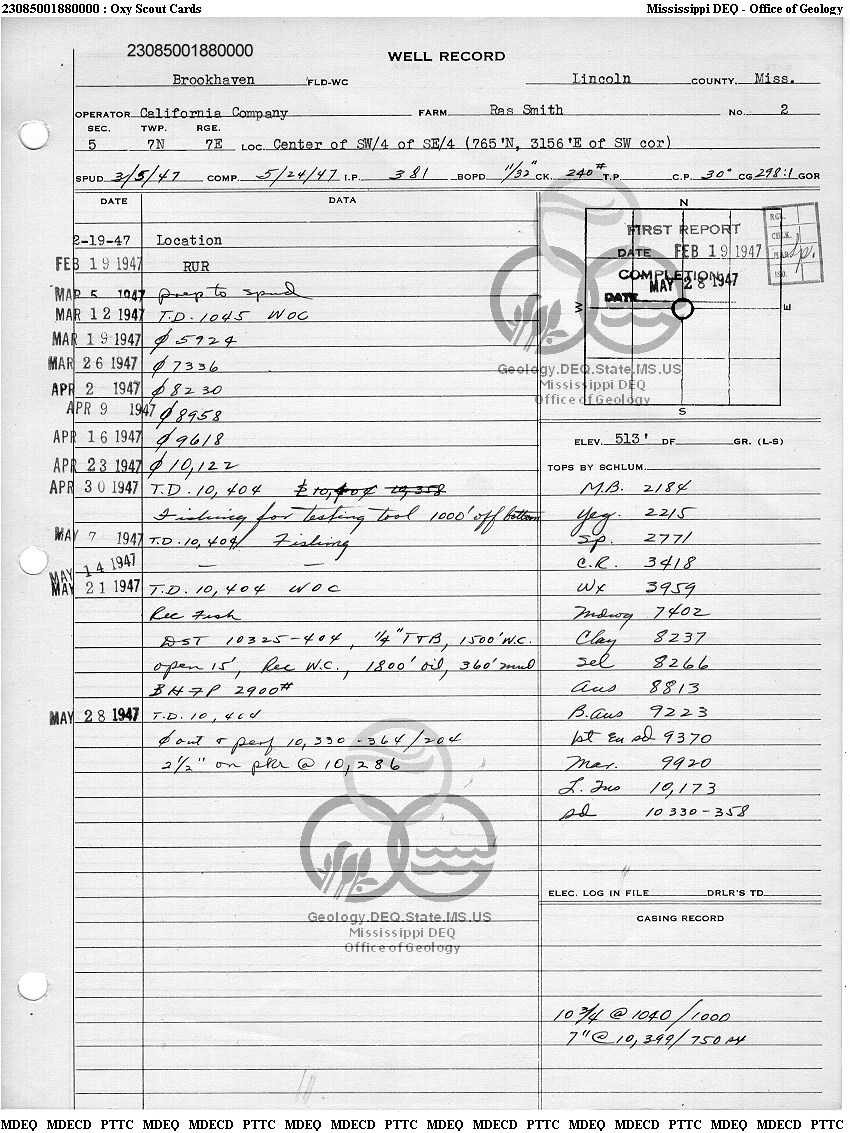 23085001880000 : Oxy Scout Cards
Mississippi DEQ - Office of Geology
23085001880000
WELL RECORD
Brookhaven FLD-WC Lincoln COUNTY, Miss.
OPERATOR California Company FARM Ras Smith No. 2
SEC. TWP. RGE.
5 7N 7E LOC. Center of SW/4 of SE/4 (765'N, 3156'E of SW cor)
SPUD 3/5/47 COMP. 5/24/47 I.P. 381 BOPD 11/32" CK. 240# T.P. C.P. 30° CG 298:1 GOR
DATE DATA
2-19-47 Location
FEB 19 1947 RUR
MAR 5 1947 prep to spud
MAR 12 1947 T.D. 1045 WOC
MAR 19 1947 ∮ 5924
MAR 26 1947 ∮ 7336
APR 2 1947 ∮ 8230
APR 9 1947 ∮ 8958
APR 16 1947 ∮ 9618
APR 23 1947 ∮ 10,122
APR 30 1947 T.D. 10,404 10,404 10,358
Fishing for testing tool 1000' off bottom
MAY 7 1947 T.D. 10,404 Fishing
MAY 14 1947 — —
MAY 21 1947 T.D. 10,404 WOC
Rec Fish
DST 10325-404, 1/4" T&B, 1500' W.C.
open 15', Rec W.C., 1800' oil, 360' mud
BHFP 2900#
MAY 28 1947 T.D. 10,404
∮ out & perf 10,330-364/204
2 1/2" on pkr @ 10,286
N
FIRST REPORT
DATE FEB 19 1947
COMPLETION
DATE MAY 28 1947
W E
S
RGL.
CHLK.
MAR.
ISO.
Geology.DEQ.State.MS.US
Mississippi DEQ
Office of Geology
ELEV. 513' DF GR. (L-S)
TOPS BY SCHLUM.
M.B. 2184
Yeg. 2215
Sp. 2771
C.R. 3418
Wx 3959
Mdwg 7402
Clay 8237
Sel 8266
Aus 8813
B. Aus 9223
1st Eu sd 9370
Mar. 9920
L. Tus 10,173
sd 10330-358
ELEC. LOG IN FILE DRLR'S TD
CASING RECORD
10 3/4 @ 1040/1000
7" @ 10,399/750 sx
Geology.DEQ.State.MS.US
Mississippi DEQ
Office of Geology
MDEQ MDECD PTTC MDEQ MDECD PTTC MDEQ MDECD PTTC MDEQ MDECD PTTC MDEQ MDECD PTTC MDEQ MDECD PTTC